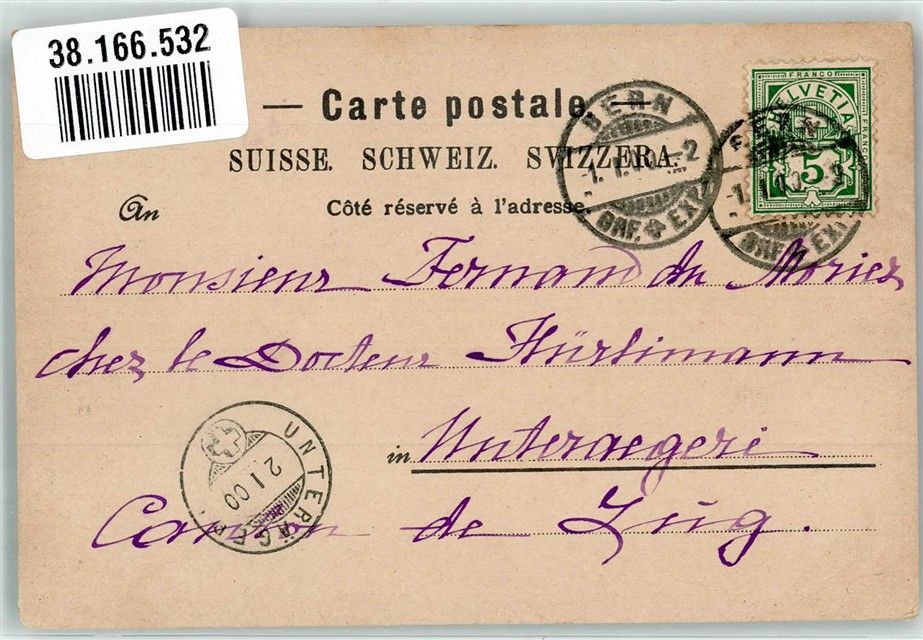 38.166.532
— Carte postale. —
SUISSE. SCHWEIZ. SVIZZERA.
An
Côté réservé à l'adresse.
FRANCO
HELVETIA
5
BERN
1. I. 00. -2
BRF. EXP.
1. I. 00. -9
BRF. EXP.
Monsieur Fernand du Moriez
chez le Docteur Hürlimann
in Unteraegeri
Canton de Zug.
UNTERÄGERI
2 I 00